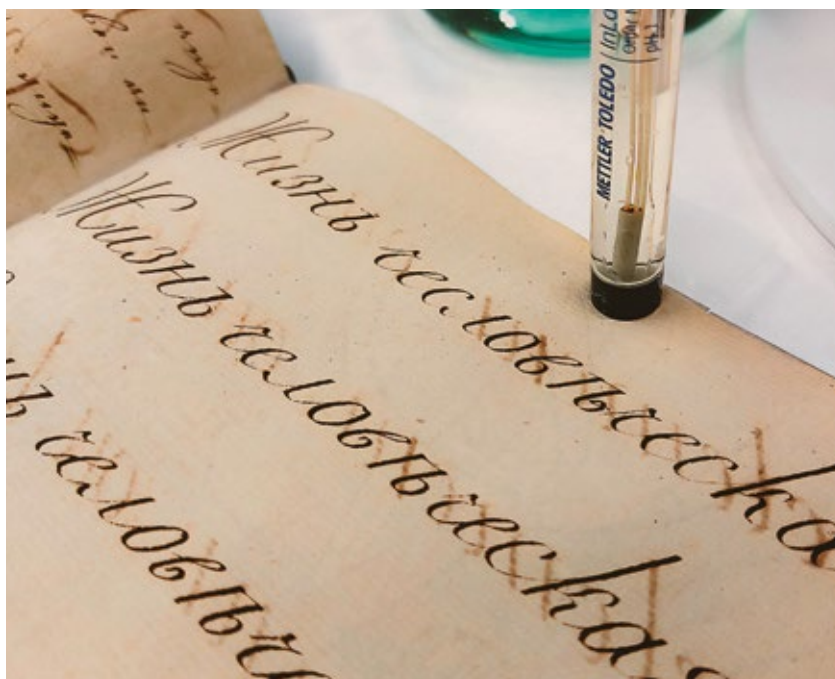 METTLER TOLEDO InLa
pH
Жизнь чесловѣческа
Жизнь человѣческа
нь человѣче